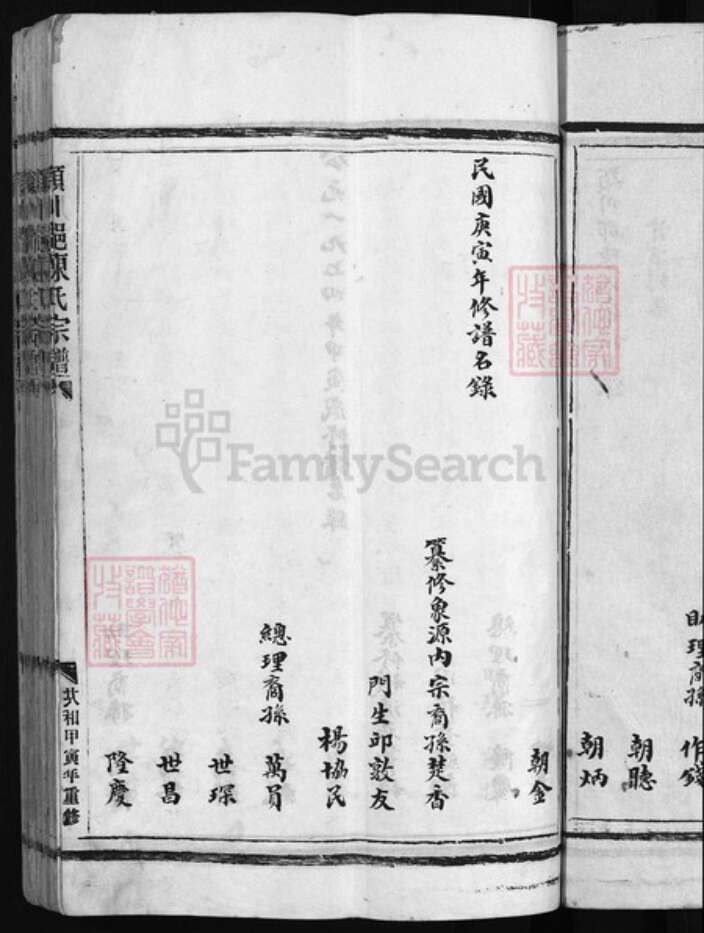 助理裔孫 作錢
朝聽
朝炳
朝金
民國庚寅年修譜名錄
纂修象源内宗裔孫楚香
門生邱敦友
楊協民
總理裔孫 萬員
世琛
世昌
隆慶
共和甲寅年重修
陳氏宗譜
FamilySearch